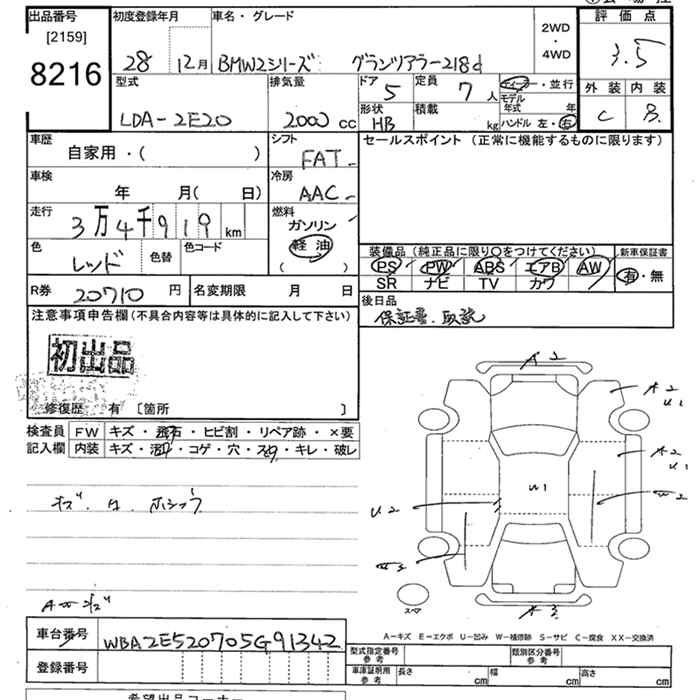 出品番号 初度登録年月 車名・グレード 2WD ・ 4WD 評価点
[2159]
8216 28 12月 BMW2シリーズ グランツアラー218d 3.5
型式 排気量 ドア 定員 ディーラー・並行 外装 内装
5 7人 モデル年式 年 C B
LDA-2E20 2000cc 形状 積載 ハンドル 左・右
HB kg
車歴 シフト セールスポイント (正常に機能するものに限ります)
自家用・( ) FAT
車検 冷房
年 月( 日) AAC
走行 燃料
3万4千919km ガソリン
色 色替 色コード 軽油 装備品(純正品に限り○をつけてください) 新車保証書
レッド ( ) PS PW ABS エアB AW 有・無
SR ナビ TV カワ
R券 20710円 名変期限 月 日 後日品
保証書.取説
注意事項申告欄(不具合内容等は具体的に記入して下さい)
初出品
修復歴 有 [箇所 ]
検査員 FW キズ・飛石・ヒビ割・リペア跡・×要
記入欄 内装 キズ・汚れ・コゲ・穴・スレ・キレ・破レ
A2
A2
U1
A2
U1
U1
W2
U2
W3
A3
スペア
A-キズ E-エクボ U-凹み W-補修跡 S-サビ C-腐食 XX-交換済
車台番号 WBA2E520705G91342 型式指定番号 参考 類別区分番号 参考
登録番号 車庫証明用 参考 長さ cm 幅 cm 高さ cm
希望出品コーナー